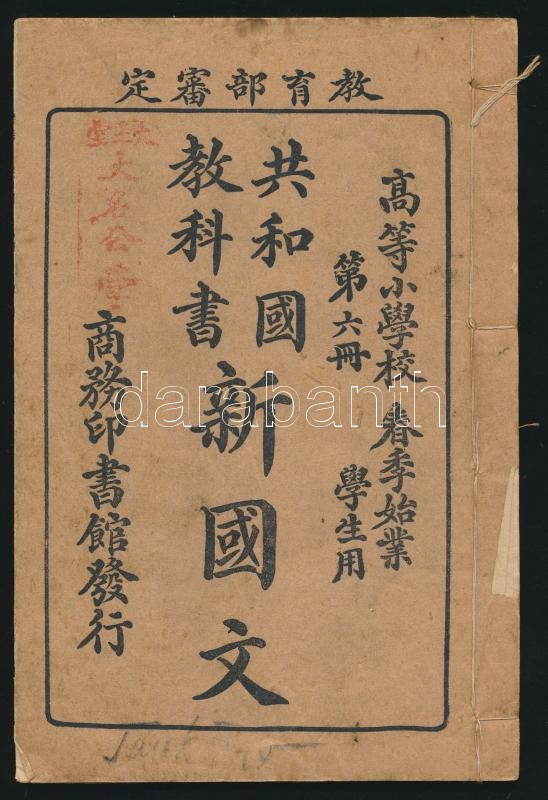 教育部審定
高等小學校 春季始業
第六冊 學生用
共和國
教科書
新國文
商務印書館發行
大名公
darabanth